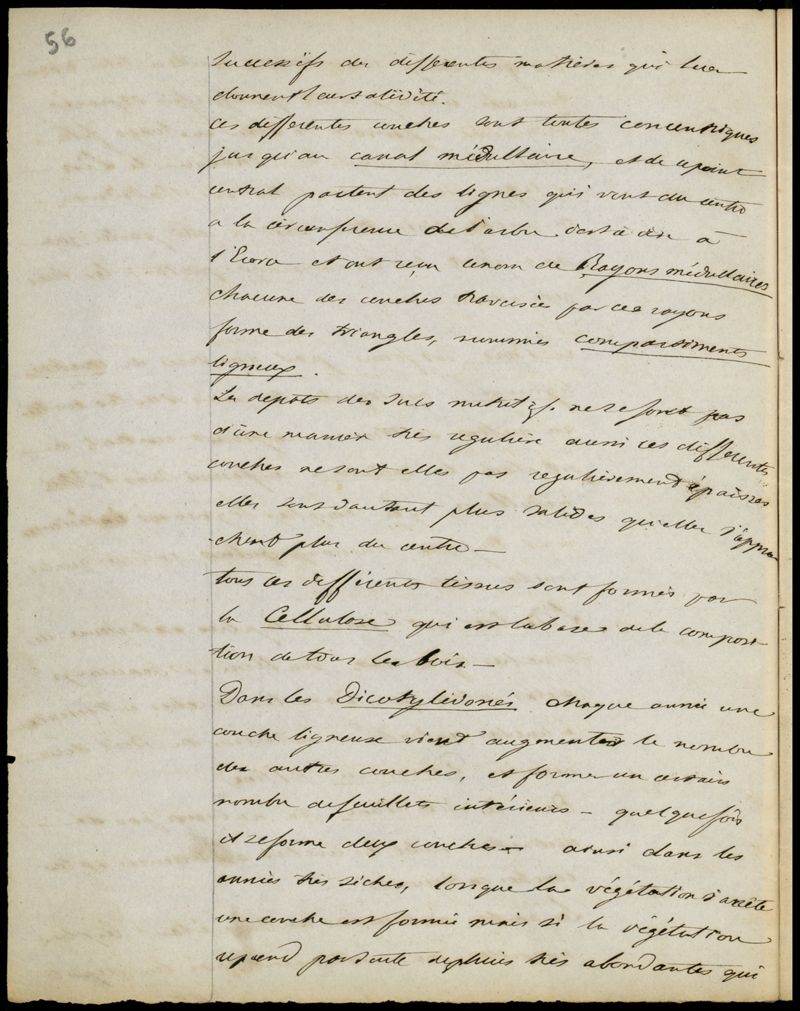 56
successifs des différentes matières qui leur
donnent l'activité.
ces differentes couches sont toutes concentriques
jusqu'au canal médullaire, et de ce point
central partent des lignes qui vont du centre
a la circonference de l'arbre. c'est a dire à
l'Ecorce et ont reçu le nom de Rayons médullaires
chacune des couches traversée par ces rayons
forme des triangles, nommés compartiments
ligneux.
Les depots des sucs nutritifs ne se font pas
d'une maniere très reguliere aussi ces differentes
couches ne sont elles pas regulièrement épaisses
elles sont d'autant plus solides qu'elles s'appro-
-chent plus du centre —
tous ces différents tissus sont formés par
la Cellulose qui est la base de la composi-
tion de tous les bois. —
Dans les Dicotylédonés chaque année une
couche ligneuse vient augmenter le nombre
des autres couches, et former un certain
nombre de feuillets intérieurs — quelquefois
il se forme deux couches — ainsi dans les
années très sèches, lorsque la végétation s'arrête
une couche est formée mais si la végétation
reprend par suite de pluies très abondantes qui